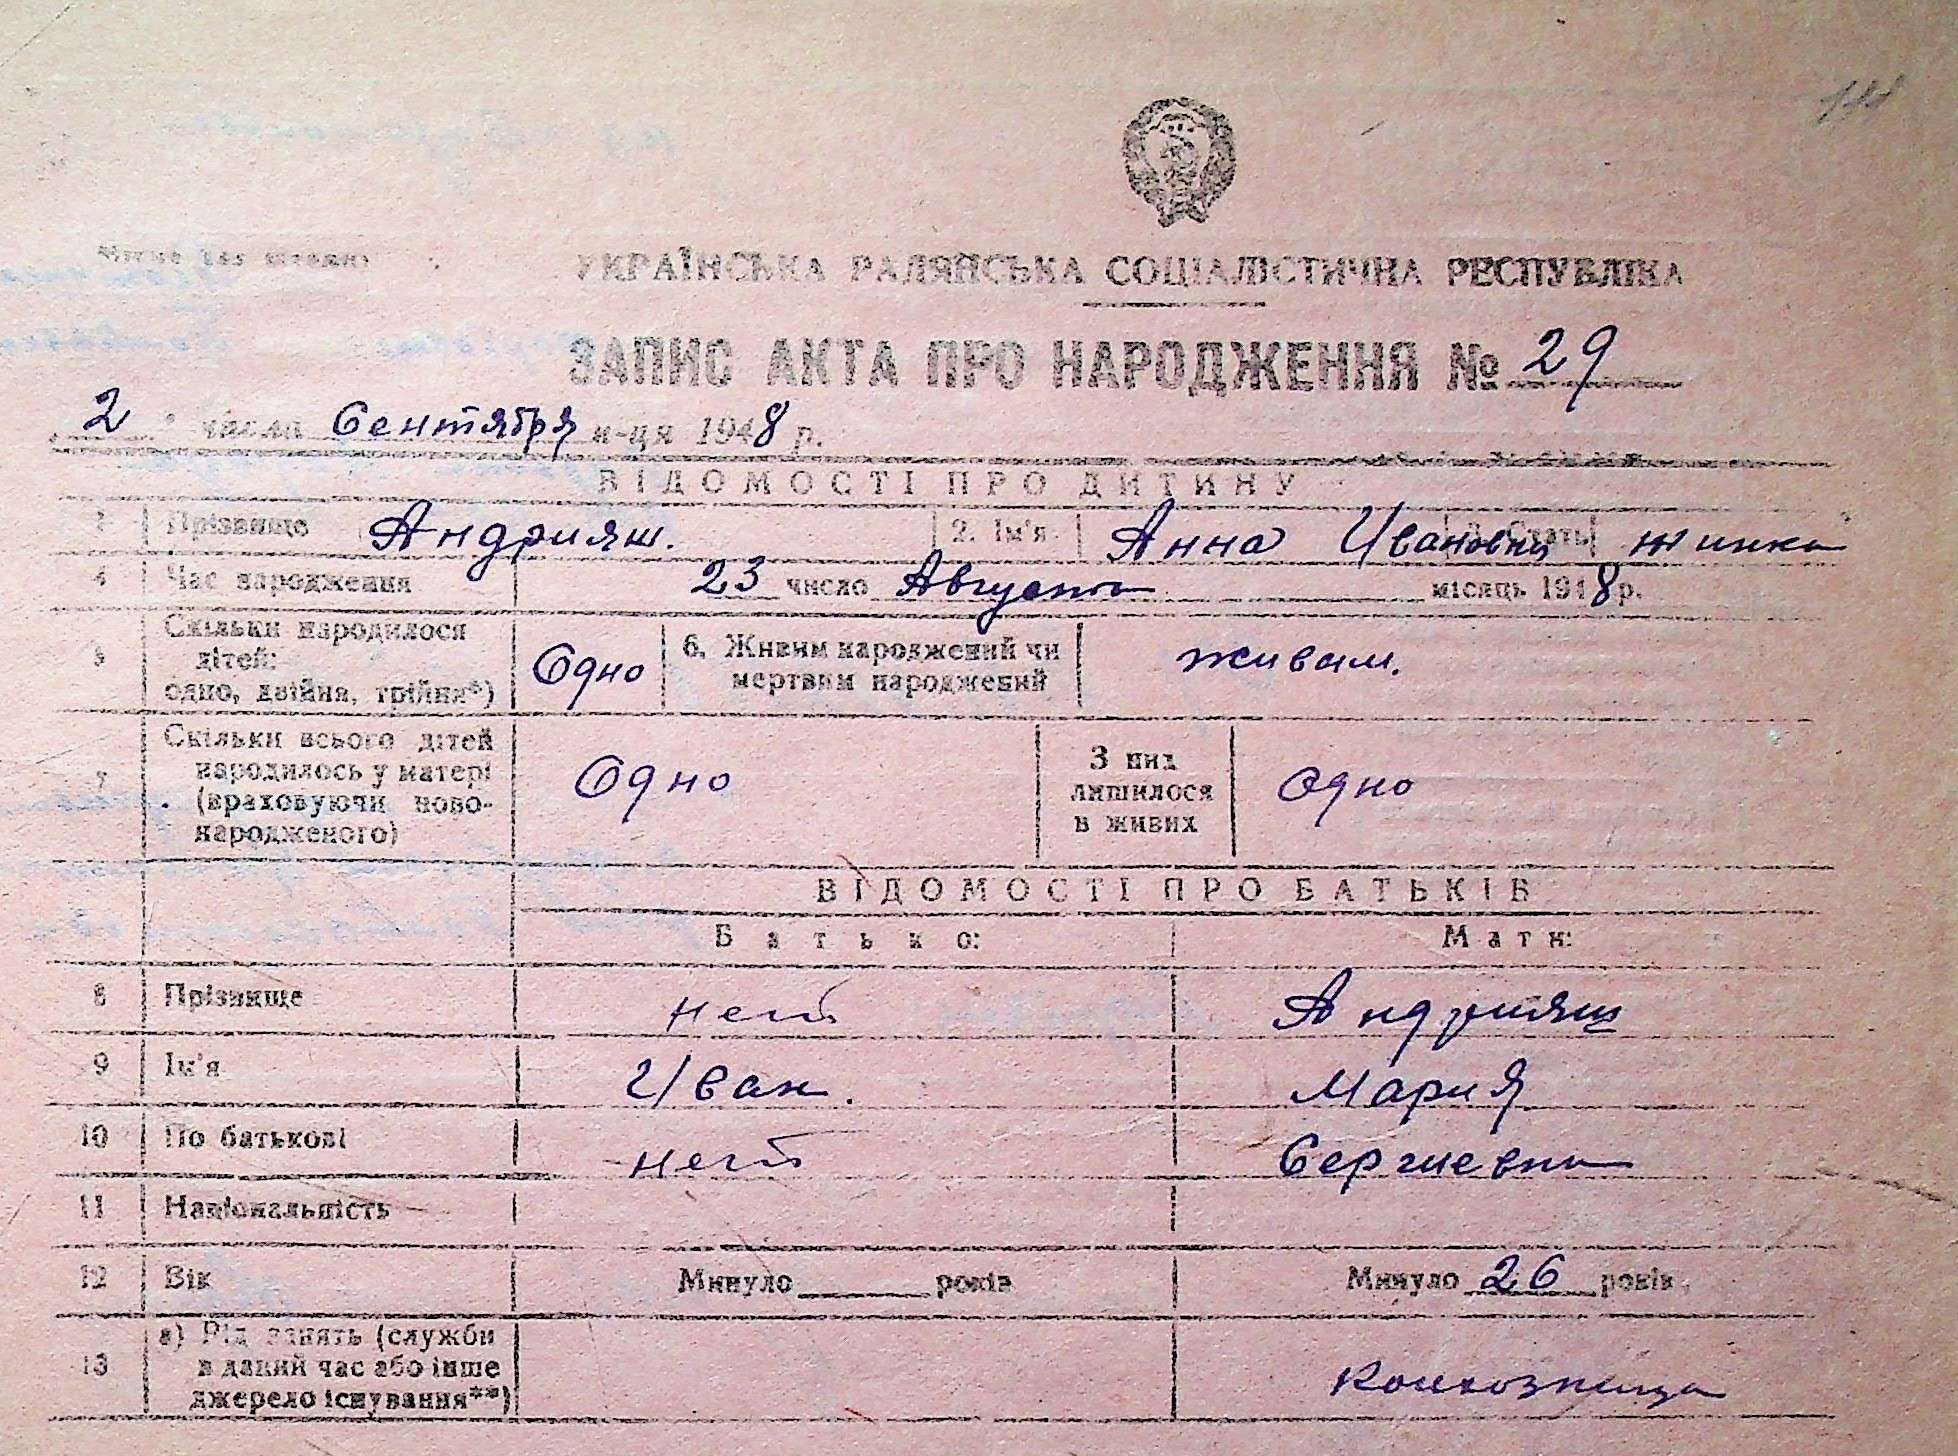 Місце для штампу
УКРАЇНСЬКА РАДЯНСЬКА СОЦІАЛІСТИЧНА РЕСПУБЛІКА
ЗАПИС АКТА ПРО НАРОДЖЕННЯ № 29
2 числа Сентября м-ця 1948 р.
ВІДОМОСТІ ПРО ДИТИНУ
1 Прізвище Андрияш. 2. Ім'я Анна Ивановна 3. Стать жинка
4 Час народження 23 число Августа місяць 1948 р.
5 Скільки народилося дітей: одно, двійня, трійня*) Одно 6. Живим народжений чи мертвим народжений живым.
7 Скільки всього дітей народилось у матері (враховуючи новонародженого) Одно З них лишилося в живих Одно
ВІДОМОСТІ ПРО БАТЬКІВ
Батько: Мати:
8 Прізвище нет Андрияш
9 Ім'я Иван. Мария
10 По батькові нет Сергиевна
11 Національність
12 Вік Минуло років Минуло 26 років
13 а) Рід занять (служби в даний час або інше джерело існування**) колхозница